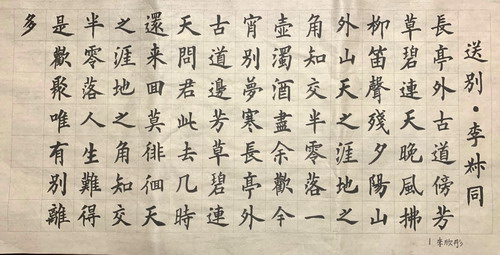 送別·李叔同
長亭外古道傍芳
草碧連天晚風拂
柳笛聲殘夕陽山
外山天之涯地之
角知交半零落一
壺濁酒盡余歡今
宵別夢寒長亭外
古道邊芳草碧連
天問君此去几時
還来回莫徘徊天
之涯地之角知交
半零落人生難得
是歡聚唯有別離
多